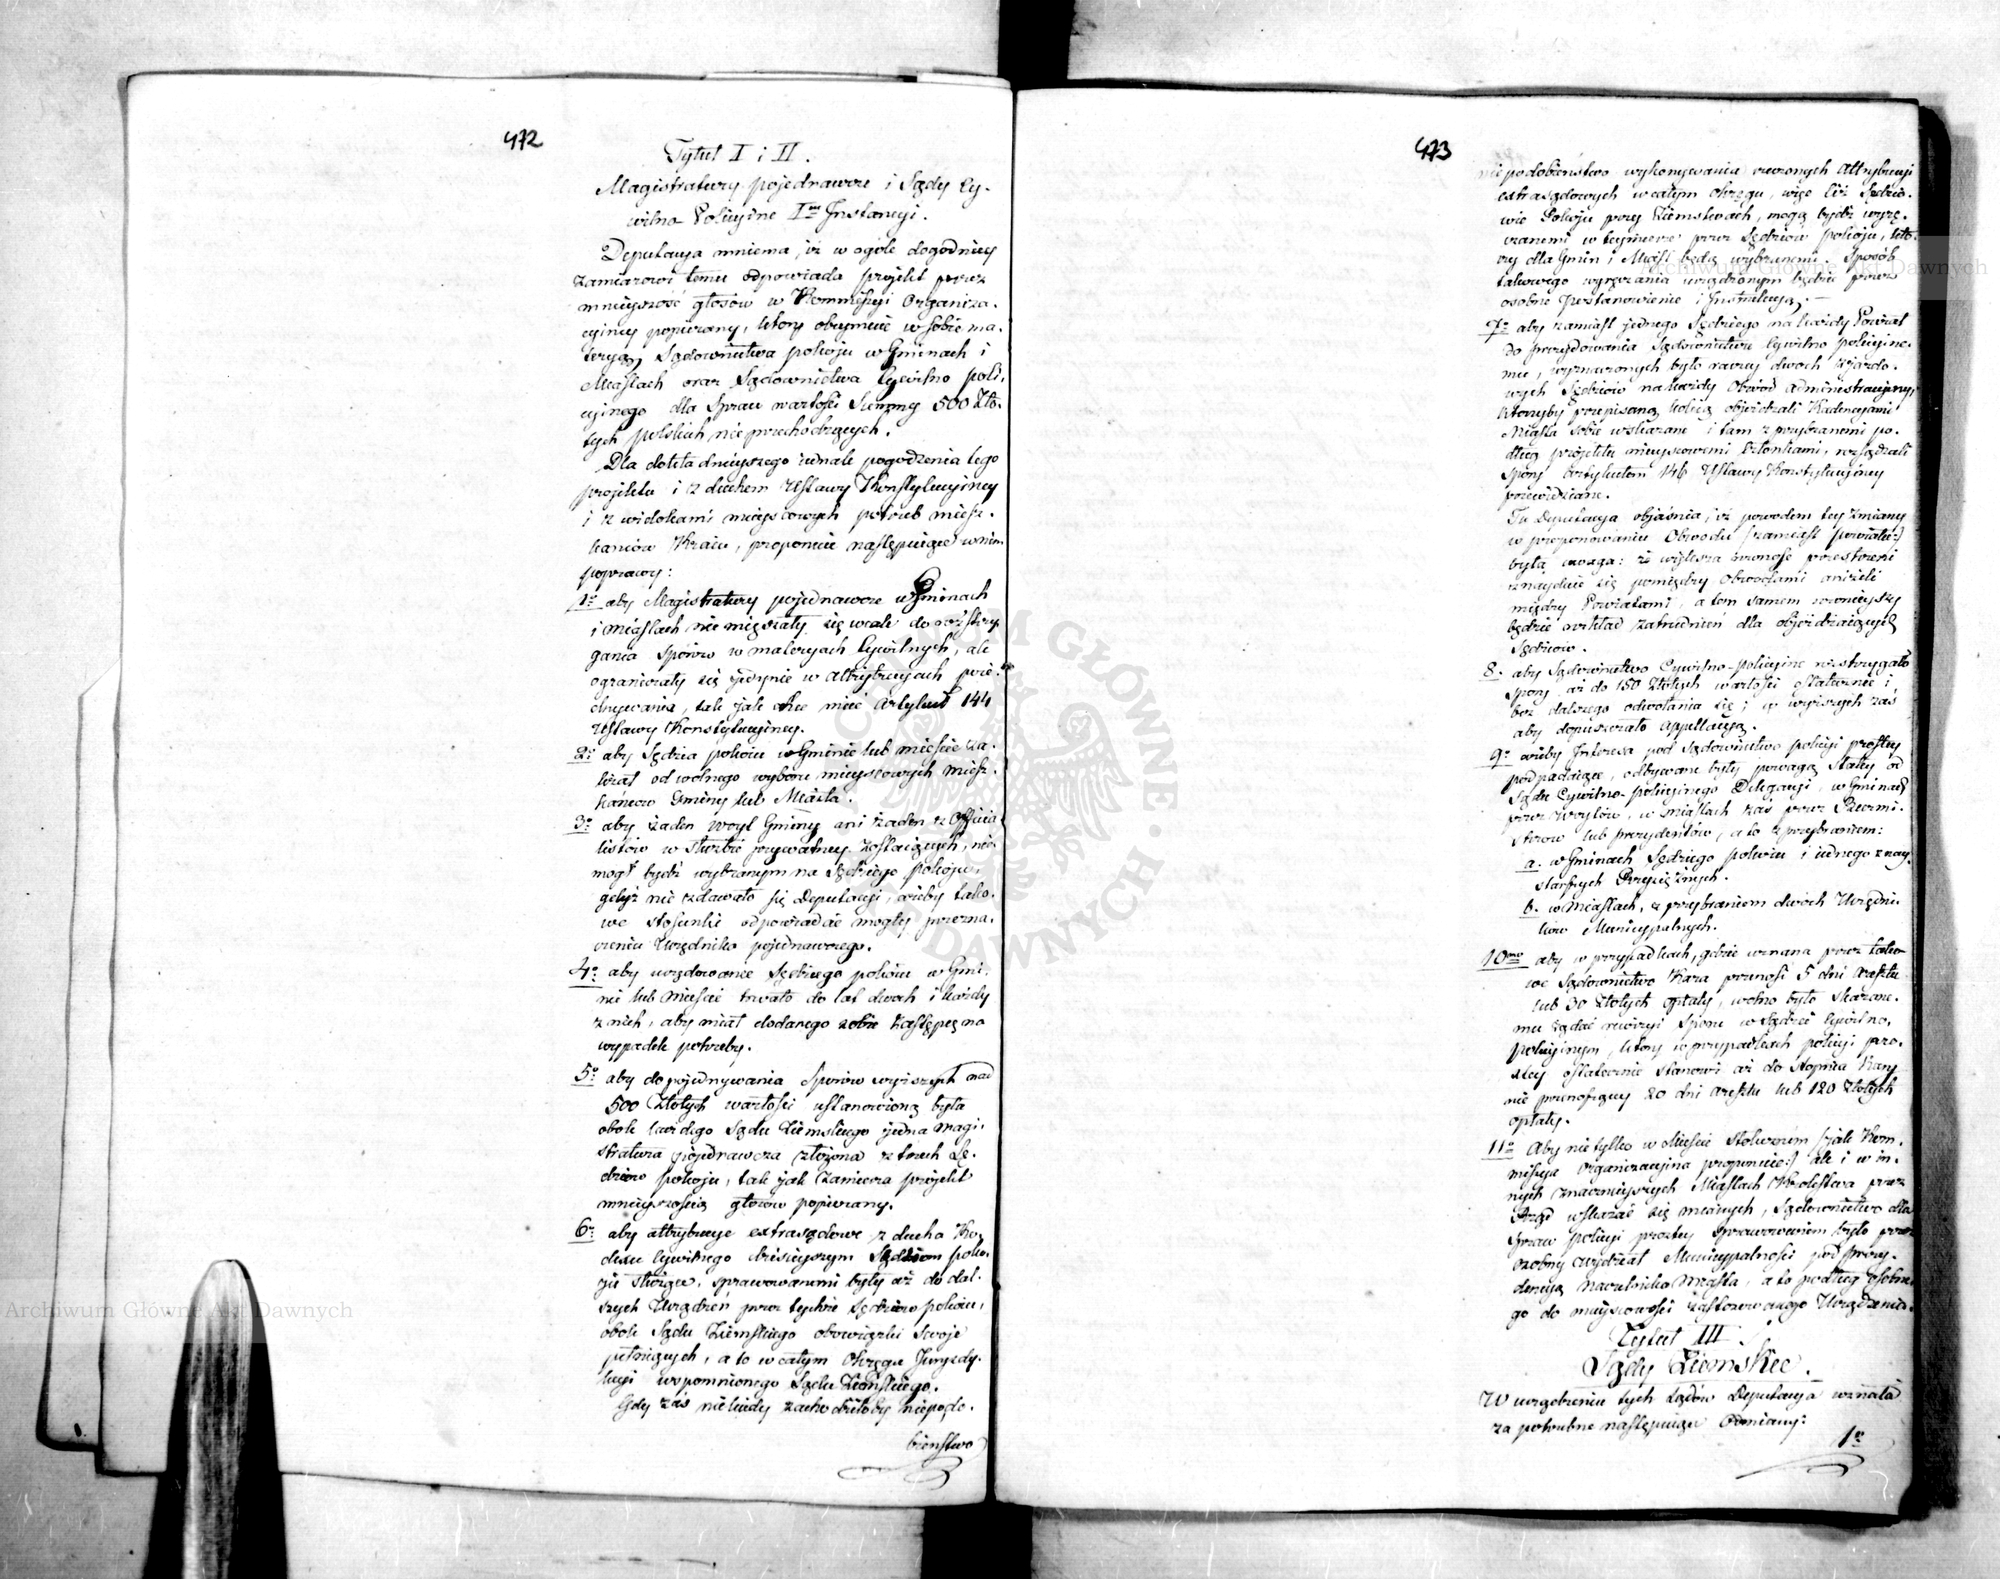 472
Tytuł I i II.
Magistratury pojednawcze i Sądy Cy-
wilno Policyine I<sup>ey</sup> Instancyi.
Deputacya mniema, iż w ogóle dogodniey
zamiarowi temu odpowiada projekt przez
mnieyszość głosów w Kommissyi Organiza-
cyiney popierany, który obeymuie w sobie ma-
teryą Sądownictwa pokoju w Gminach i
Miastach oraz Sądownictwa Cywilno poli-
cyinego dla Spraw wartości Summy 500 Zło-
tych polskich nie przechodzących.
Dla dokładnieyszego iednak pogodzenia tego
projektu i z duchem Ustawy Konstytucyiney
i z widokami mieyscowych potrzeb miesz-
kańców Kraiu, proponuie następuiące w nim
poprawy:
1º aby Magistratury pojednawcze w Gminach
i Miastach nie mięszały się wcale do rozstrzy-
gania sporów w materyach Cywilnych, ale
ograniczały się jedynie w attrybucyach poie-
dnywania, tak jak chce mieć Artykuł 144
Ustawy Konstytucyiney.
2º aby Sędzia pokoiu w Gminie lub mieście za-
leżał od wolnego wyboru mieyscowych miesz-
kańców Gminy lub Miasta.
3º aby żaden Woyt Gminy ani żaden z Officia-
listów w służbie prywatney zostaiących, nie
mógł bydź wybranym na Sędziego pokoju,
gdyż nie zdawało się Deputacyi, ażeby tako-
we stosunki odpowiadać mogły przezna-
czeniu Urzędnika pojednawczego.
4º aby urzędowanie Sędziego pokoiu w Gmi-
nie lub Mieście trwało do lat dwóch i każdy
z nich, aby miał dodanego sobie Zastępcę na
wypadek potrzeby.
5º aby do pojednywania Sporów wyższych nad
500 Złotych wartości ustanowioną była
obok każdego Sądu Ziemskiego jedna Magi-
stratura pojednawcza złożona z trzech Sę-
dziów pokoju, tak jak zamierza projekt
mnieyszością głosów popierany.
6º aby attrybucye extrasądowe z ducha Ko-
dexu Cywilnego dzisieyszym Sędziom poko-
ju służące, sprawowanemi były aż do dal-
szych Urządzeń przez tychże Sędziów pokoiu,
obok Sądu Ziemskiego obowiązki swoje
pełniących, a to w całym Okręgu Juryzdy-
kcyi wspomnionego Sądu Ziemskiego.
Gdy zaś niekiedy zachodziłoby niepodo-
bieństwo
473
niepodobieństwo wykonywania rzeczonych Attrybucyi
extrasądowych w całym Okręgu, więc ciż Sędzio-
wie Pokoju przy Ziemstwach, mogą bydź wyrę-
czanemi w teymierze przez Sędziów pokoju, któ-
rzy dla Gmin i Miast będą wybranemi. Sposób
takowego wyręczania urządzonym będzie przez
osobne Postanowienie i Instrukcyą. —
7º aby zamiast jednego Sędziego na każdy Powiat
do prezydowania Sądownictwu Cywilno policyine-
mu, wyznaczonych było raczey dwóch zjazdo-
wych Sędziów na każdy Obwód Administracyiny,
którzyby przepisaną koleią objeżdżali Kadencyami
Miasta sobie wskazane i tam z przybranemi po-
dług projektu mieyscowemi Członkami, rozsądzali
spory Artykułem 146 Ustawy Konstytucyiney
przewidziane.
Tu Deputacya objaśnia, iż powodem tey zmiany
w proponowaniu Obwodu [zamiast powiatu:]
była uwaga: iż większa równość przestrzeni
znayduie się pomiędzy Obwodami aniżeli
między Powiatami, a tem samem równieyszy
będzie rozkład zatrudnień dla objeżdżaiących
Sędziów.
8. aby Sądownictwo Cywilno-policyine rozstrzygało
spory aż do 150 Złotych wartości ostatecznie i
bez dalszego odwołania się; w wyższych zaś
aby dopuszczało appellacyą.
9º ażeby Interesa pod Sądownictwo policyi prostey
podpadaiące, odbywane były powagą stałey od
Sądu Cywilno-policyinego Delegacyi, w Gminach
przez Woytów, w Miastach zaś przez Burmi-
strzów lub prezydentów, a to z przybraniem:
a. w Gminach Sędziego pokoiu i iednego z nay-
starszych Przysiężnych.
b. w Miastach, z przybraniem dwóch Urzędni-
ków Municypalnych.
10<sup>mo</sup> aby w przypadkach, gdzie uznana przez tako-
we Sądownictwo Kara przenosi 5 dni aresztu
lub 30 Złotych opłaty, wolno było skazane-
mu żądać rewizyi sporu w Sądzie Cywilno-
Policyinym, który w przypadkach policyi pro-
stey ostatecznie stanowi aż do stopnia Kary
nie przenoszącey 20 dni aresztu lub 120 Złotych
opłaty.
11º Aby nie tylko w Mieście Stołecznem [: jak Kom-
missya Organizacyina proponuie:] ale i w in-
nych znacznieyszych Miastach Królestwa przez
Rząd wskazać się maiących, Sądownictwo dla
Spraw policyi prostey sprawowanem było przez
osobny wydział Municypalności pod prezy-
dencyą naczelnika Miasta, a to podług osobne-
go do mieyscowości zastosowanego Urządzenia.
Tytuł III.
Sądy Ziemskie.
W urządzeniu tych Sądów Deputacya uznała
za potrzebne następuiące Odmiany:
1º
Archiwum Główne Akt Dawnych
Archiwum Główne Akt Dawnych
ARCHIWUM GŁÓWNE AKT DAWNYCH